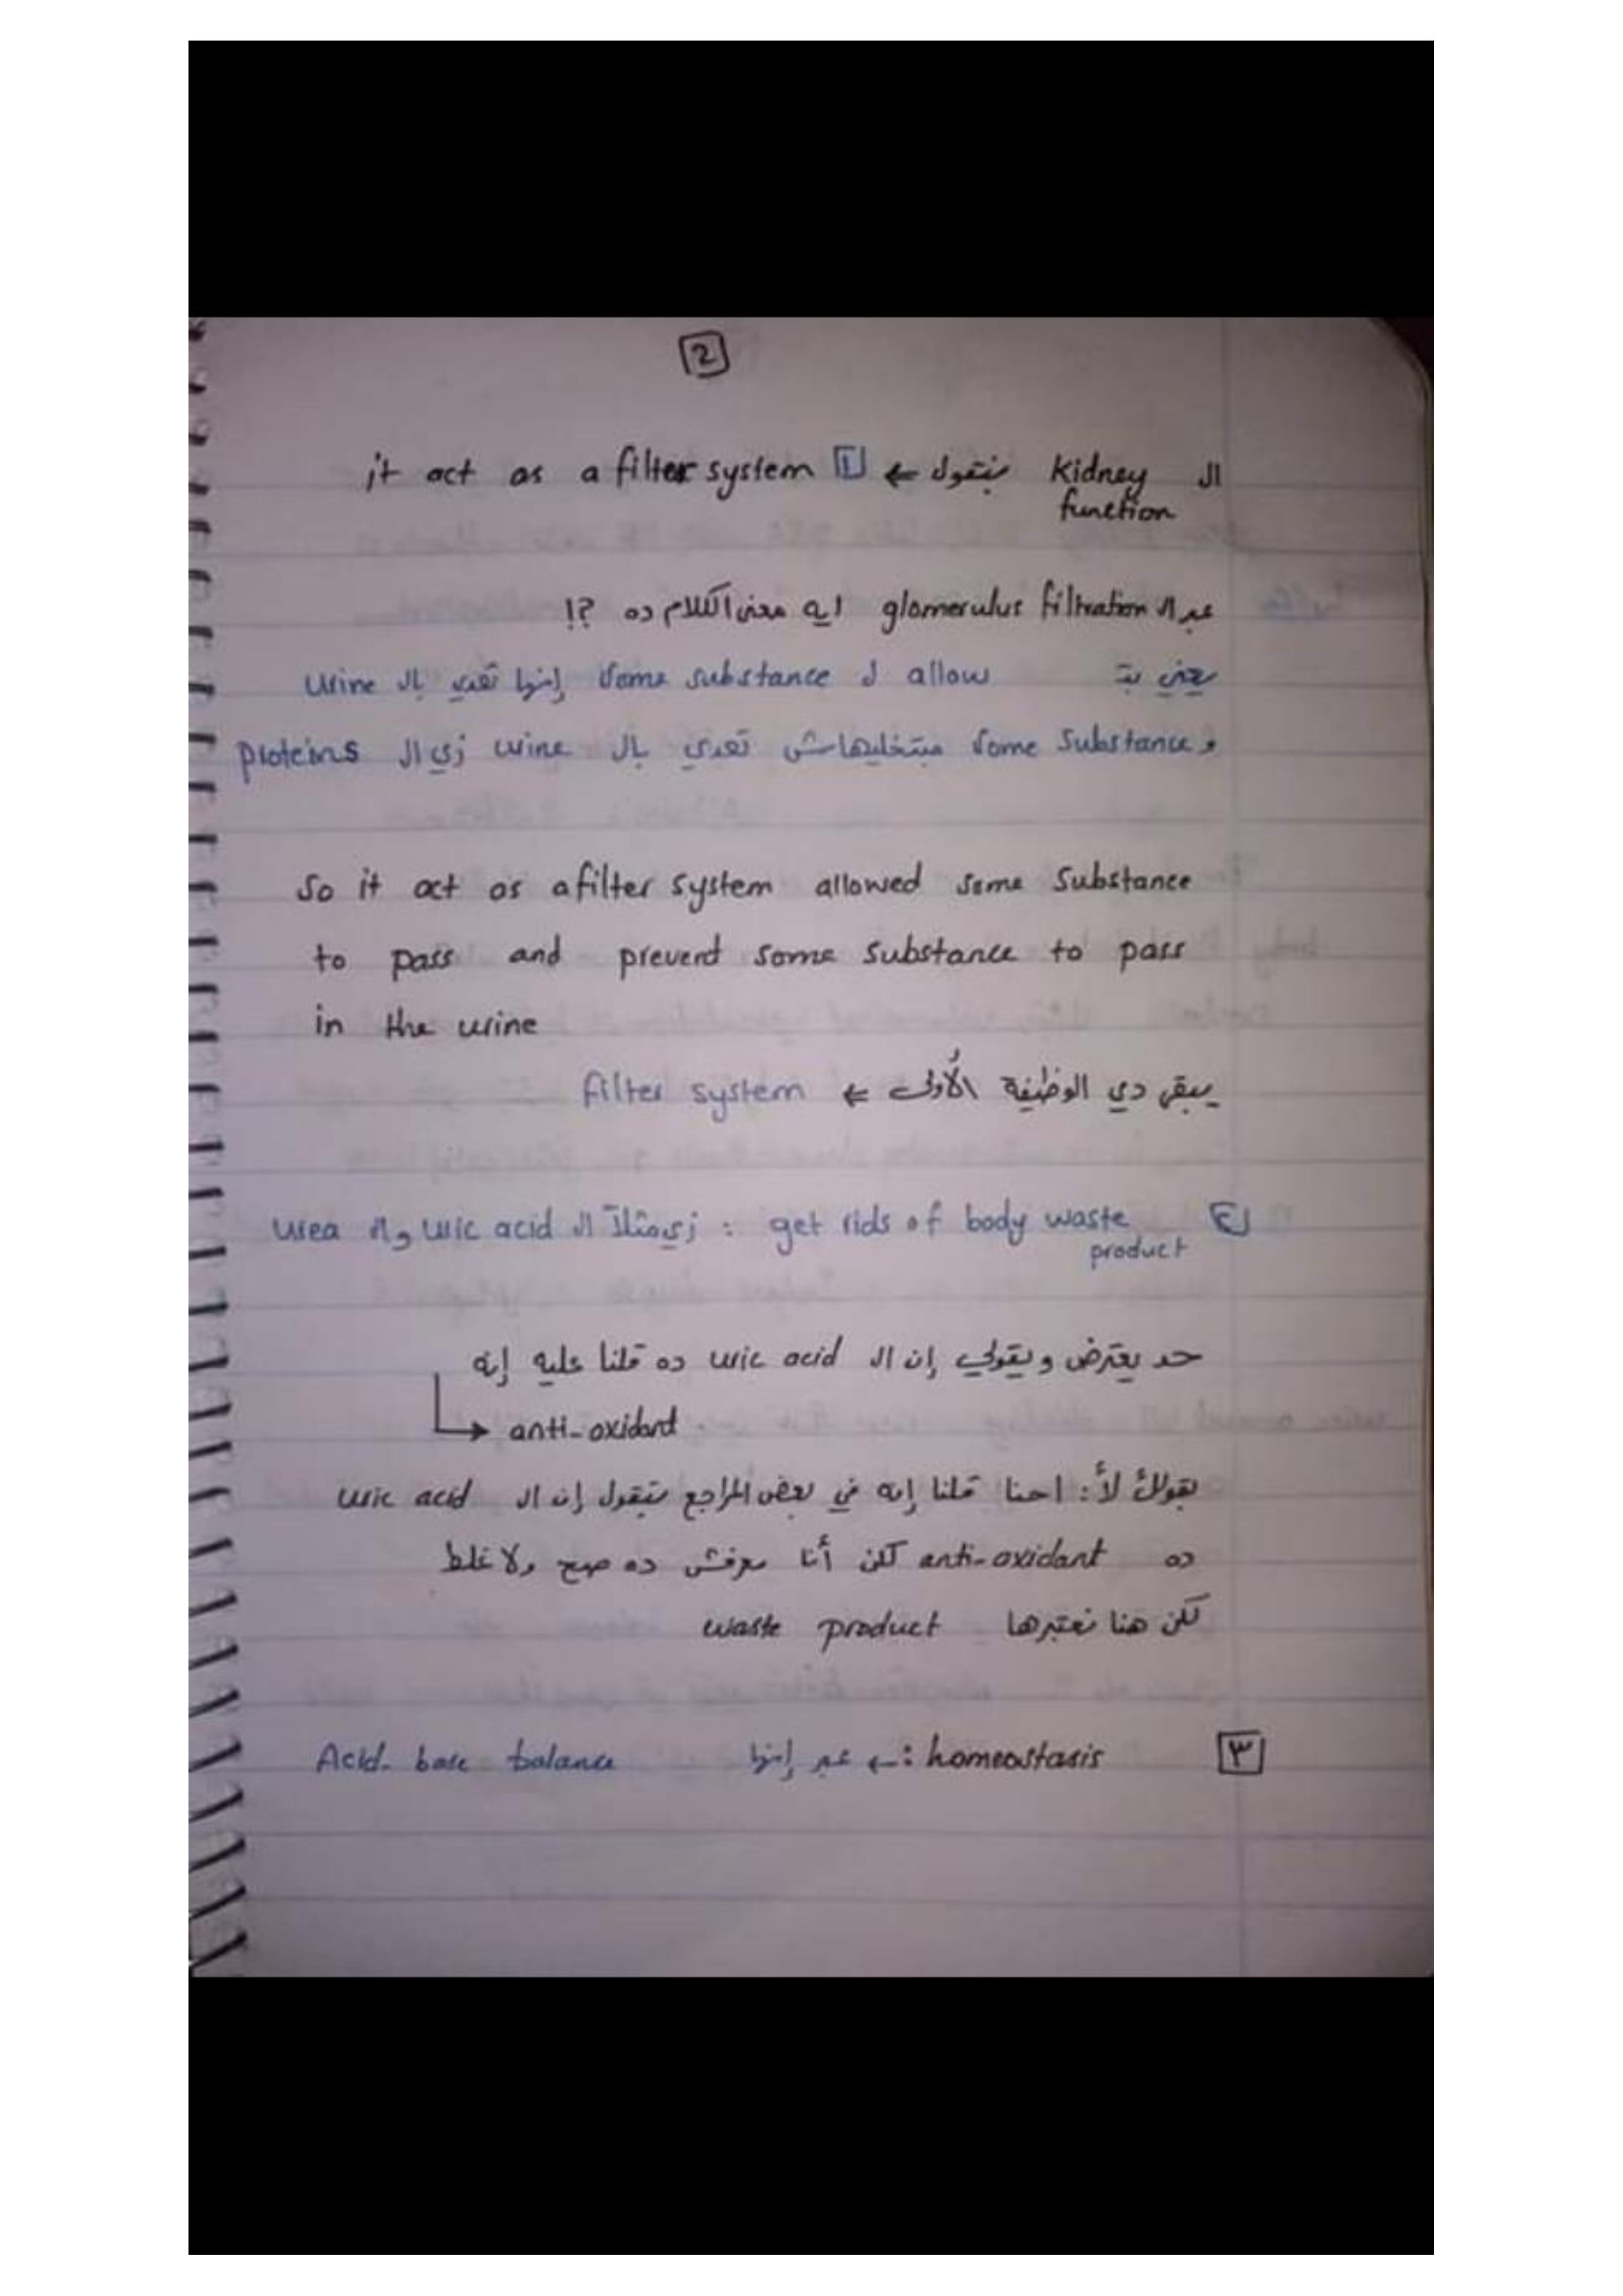 2
ال Kidney بنقول ← ١ it act as a filter system
function
عبر ال glomerulus filtration ايه معنى الكلام ده ?!
يعني بت allow ل some substance إنها تعدي بال urine
و some substance مبتخليهاش تعدي بال urine زي ال proteins
So it act as a filter system allowed some substance
to pass and prevent some substance to pass
in the urine
يبقى دي الوظيفة الأولى ← filter system
٢ get rids of body waste : زي مثلاً ال uric acid وال urea
product
حد يعترض ويقولي إن ال uric acid ده قلنا عليه إنه
→ anti-oxidant
بقولك لأ : احنا قلنا إنه في بعض المراجع بتقول إن ال uric acid
ده anti-oxidant لكن أنا معرفش ده صح ولا غلط
لكن هنا نعتبرها waste product
٣ homeostasis :← عبر إنها Acid-base balance